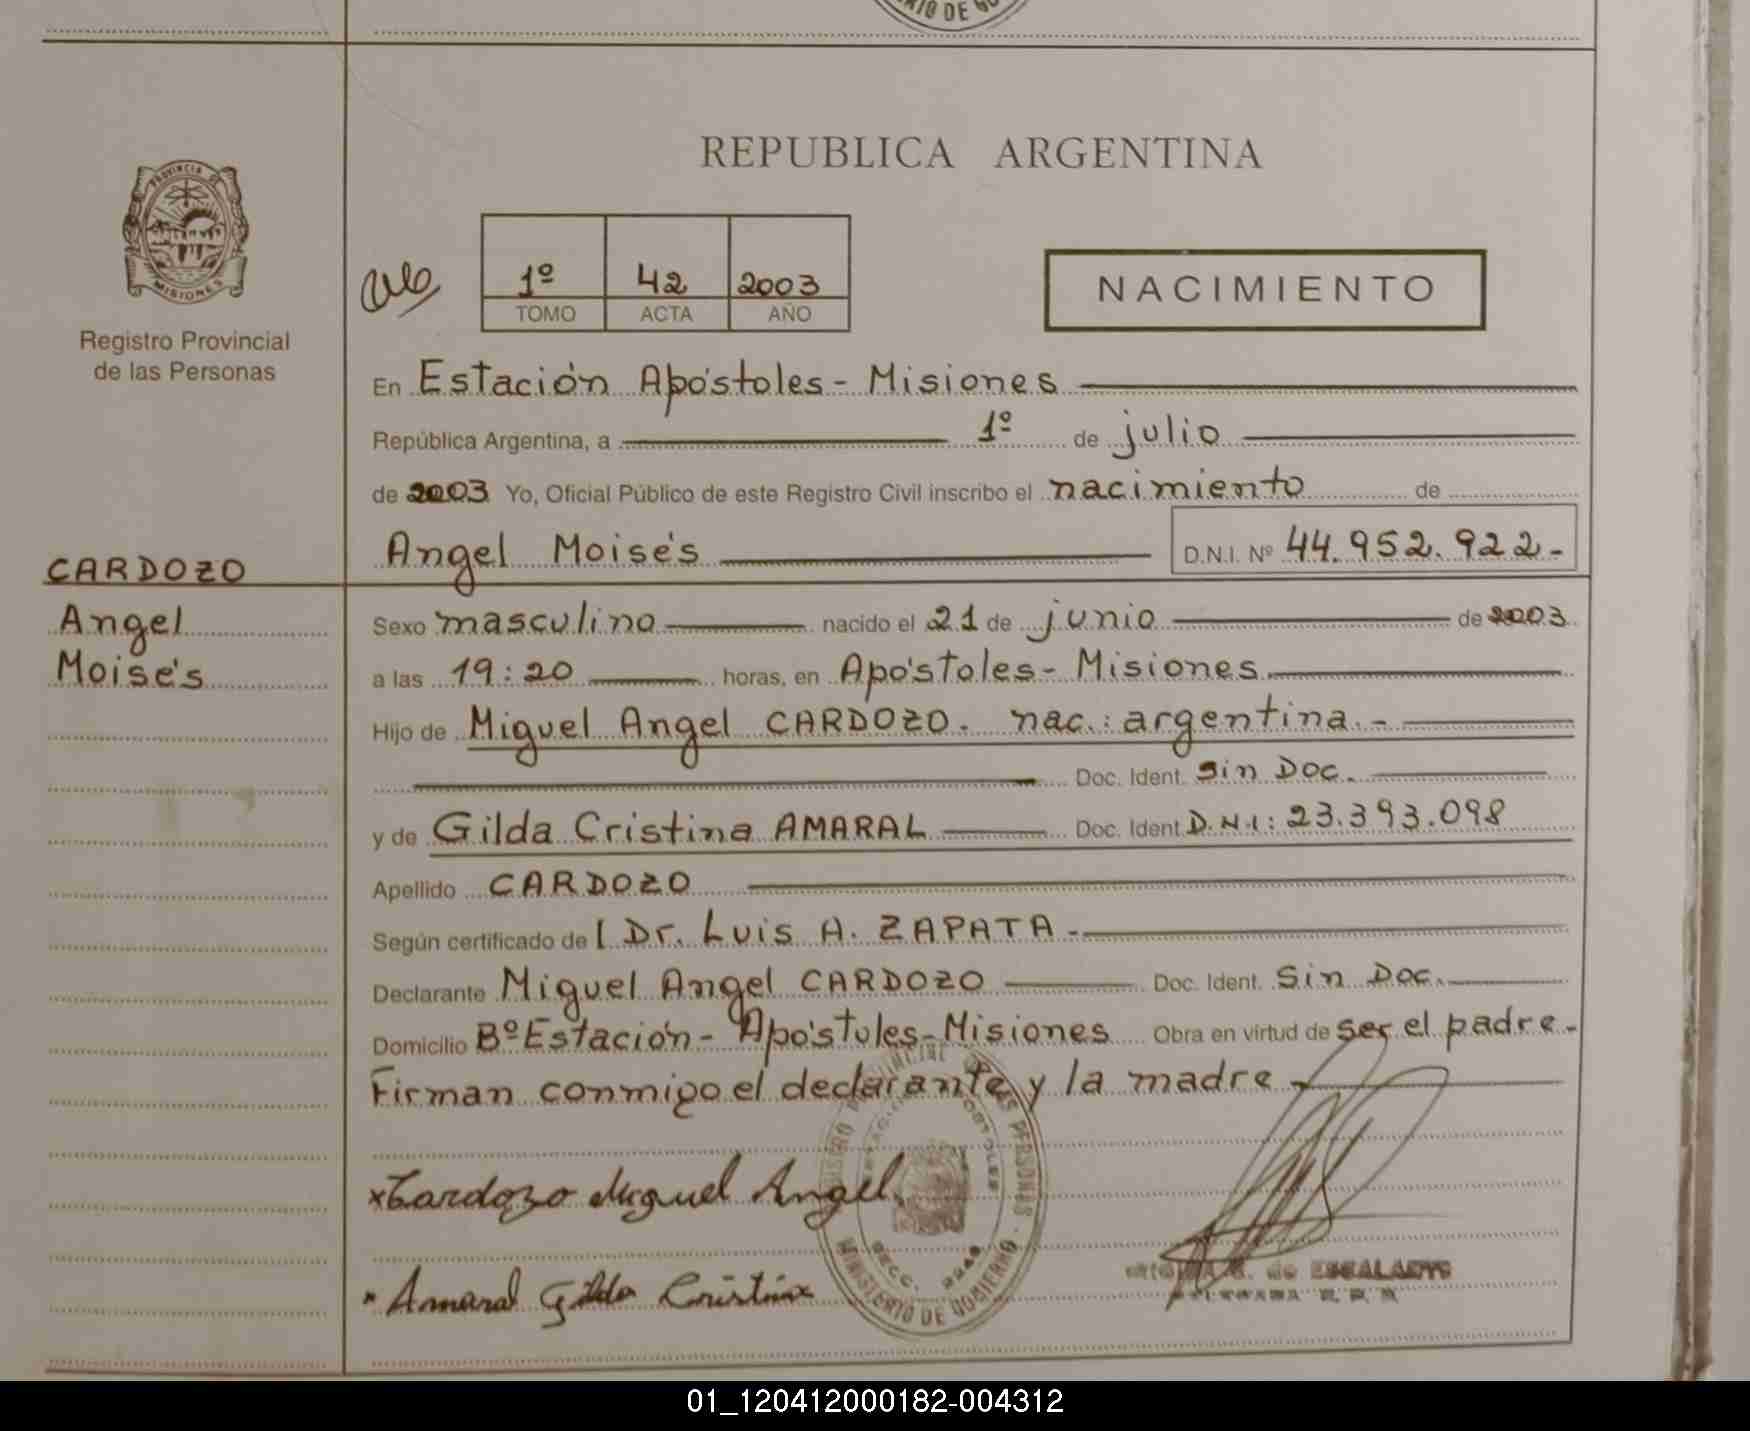 MINISTERIO DE GO
REPUBLICA ARGENTINA
PROVINCIA DE
MISIONES
Registro Provincial
de las Personas
1º 42 2003
TOMO ACTA AÑO
NACIMIENTO
En Estación Apóstoles - Misiones
República Argentina, a 1º de julio
de 2003 Yo, Oficial Público de este Registro Civil inscribo el nacimiento de
Angel Moisés D.N.I. Nº 44.952.922.-
CARDOZO
Angel
Moisés
Sexo masculino nacido el 21 de junio de 2003
a las 19:20 horas, en Apóstoles - Misiones
Hijo de Miguel Angel CARDOZO. nac.: argentina.-
Doc. Ident. Sin Doc.
y de Gilda Cristina AMARAL Doc. Ident. D.N.I: 23.393.098
Apellido CARDOZO
Según certificado de l Dr. Luis A. ZAPATA -
Declarante Miguel Angel CARDOZO Doc. Ident. Sin Doc.
Domicilio Bº Estación - Apóstoles - Misiones Obra en virtud de ser el padre.-
Firman conmigo el declarante y la madre
x Cardozo Miguel Angel
Amaral Gilda Cristina
MINISTERIO DE GOBIERNO
de ESCALADA
01_120412000182-004312